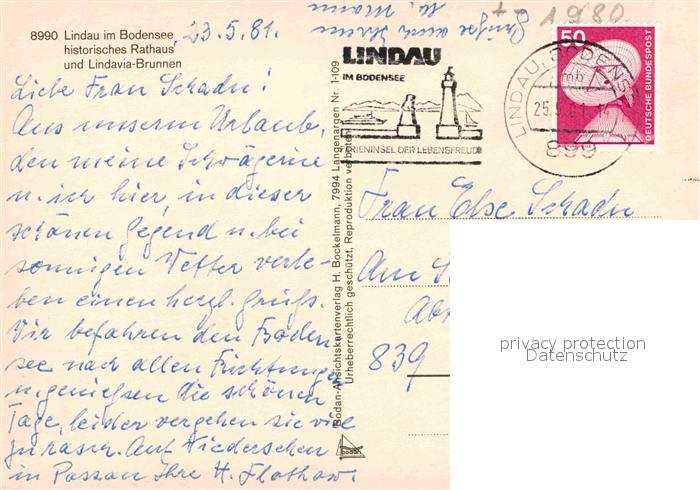 8990 Lindau im Bodensee
historisches Rathaus
und Lindavia-Brunnen
23.5.81.
Liebe Frau Schadn!
Aus unserm Urlaub,
den meine Schwägerin
u. ich hier, in dieser
schönen Gegend u. bei
sonnigen Wetter verle-
ben einen herzl. Gruß.
Wir befahren den Boden-
see nach allen Richtungen
u. genießen die schönen
Tage, leider vergehen sie viel
zu rasch. Auf Wiedersehen
in Passau Ihre H.
Grüße auch Ihrem
Mann
+ 1980
LINDAU
IM BODENSEE
FERIENINSEL DER LEBENSFREUDE
LINDAU, BODENSEE
25.5.81
899
50
DEUTSCHE BUNDESPOST
Bodan-Ansichtskartenverlag H. Bockelmann, 7994 Langenargen Nr. 1-09
Urheberrechtlich geschützt, Reproduktion verboten
bodan
Frau Else Schadn
Am
839
privacy protection
Datenschutz